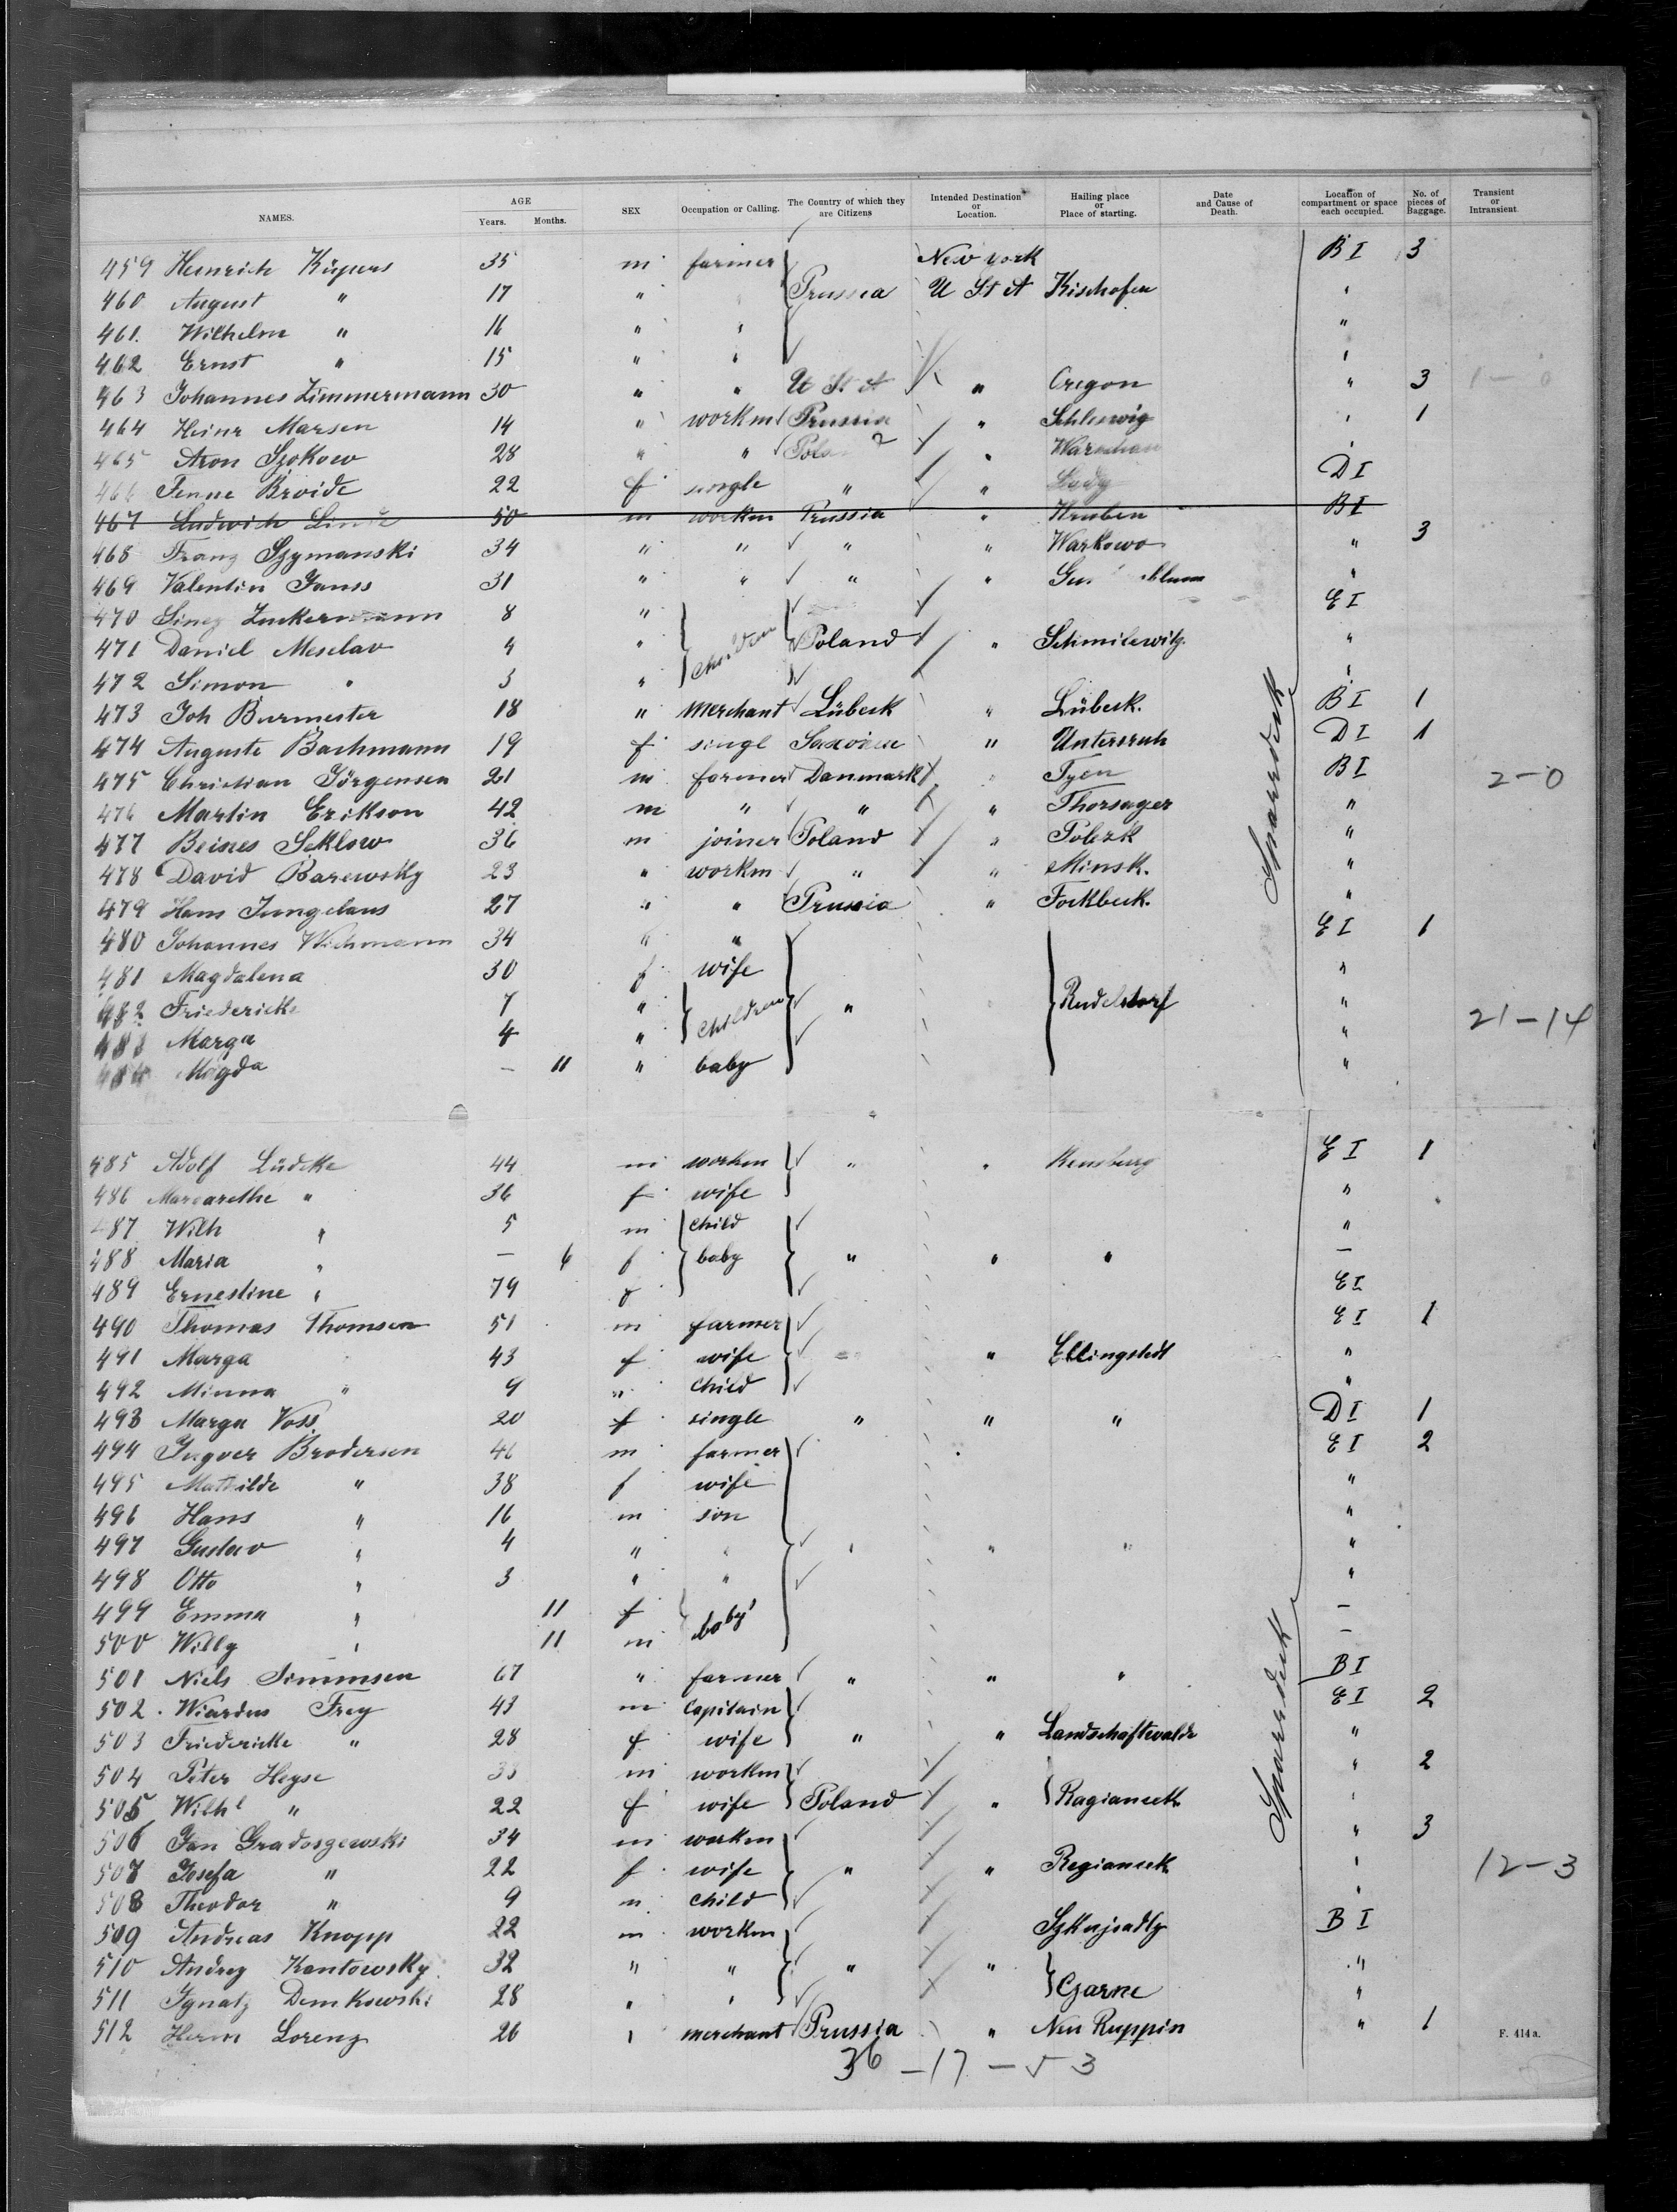 NAMES. AGE Years. Months. SEX Occupation or Calling. The Country of which they are Citizens Intended Destination or Location. Hailing place or Place of starting. Date and Cause of Death. Location of compartment or space each occupied. No. of pieces of Baggage. Transient or Intransient.
459 Heinrich Küpers 35 m farmer New York B I 3
460 August " 17 " " Prussia U St A Kischofen "
461. Wilhelm " 16 " " "
462 Ernst " 15 " " "
463 Johannes Zimmermann 30 " " U St A " Oregon " 3 1-0
464 Heinr Marsen 14 " workm Prussia " Schleswig " 1
465 Aron Szokow 28 " " " Warschau "
466 Fenne Broide 22 f single " " D I
467 Ludwich 50 m workm Prussia " Kruben B I
468 Franz Szymanski 34 " " " " Warkowo " 3
469 Valentin Janss 31 " " " " "
470 Sincz Zuckermann 8 " E I
471 Daniel Meselav 4 " children Poland " Schmilewitz. "
472 Simon " 3 " "
473 Joh Burmester 18 " merchant Lübeck " Lübeck. B I 1
474 Auguste Bachmann 19 f singl Saxonia " Untersruh D I 1
475 Christian Jörgensen 21 m farmer Danmark " Tyen B I 2-0
476 Martin Erikson 42 m " " " Thorsager "
477 Beines Seklow 36 m joiner Poland " Polozk "
478 David Barewsky 23 " workm " " Minsk. "
479 Hans Jungclaus 27 " " Prussia " Fockbeck. "
480 Johannes Wichmann 34 " " E I 1
481 Magdalena 30 f wife "
482 Friedericke 7 " children " Rudelstorf " 21-14
483 Marga 4 " "
484 Magda - 11 " baby "
Sparedeck
485 Adolf Lüdtke 44 m workm " " Rensburg E I 1
486 Margarethe " 36 f wife "
487 Wilh " 5 m child "
488 Maria " - 6 f baby " " " -
489 Ernestine " 79 f E I
490 Thomas Thomsen 51 m farmer E I 1
491 Marga 43 f wife " Ellingstedt "
492 Minna " 9 " child "
493 Marga Voss 20 f single " " " D I 1
494 Ingver Brodersen 46 m farmer E I 2
495 Mathilde " 38 f wife "
496 Hans " 16 m son "
497 Gustav " 4 " " " " " "
498 Otto " 3 " " "
499 Emma " 11 f baby's -
500 Willy " 11 m -
501 Niels Simmsen 67 " farmer " " " B I
502. Wiardus Frey 43 m Capitain E I 2
503 Friedericke " 28 f wife " " Landschaftswalde "
504 Peter Heyse m workm " 2
505 Wilhl " 22 f wife Poland " Ragianeck "
506 Jan Gradosgewski 34 m workm " 3
507 Josefa " 22 f wife " " Regianeck " 12-3
508 Theodor " 9 m child "
509 Andreas Knopp 22 m workm B I
510 Andrey Kantowsky. 32 " " " " "
511 Ignatz Demkowski 28 " " Czarne "
512 Herm Lorenz 26 " merchant Prussia " Neu Ruppin " 1
Sparedeck
F. 414a.
36-17-53